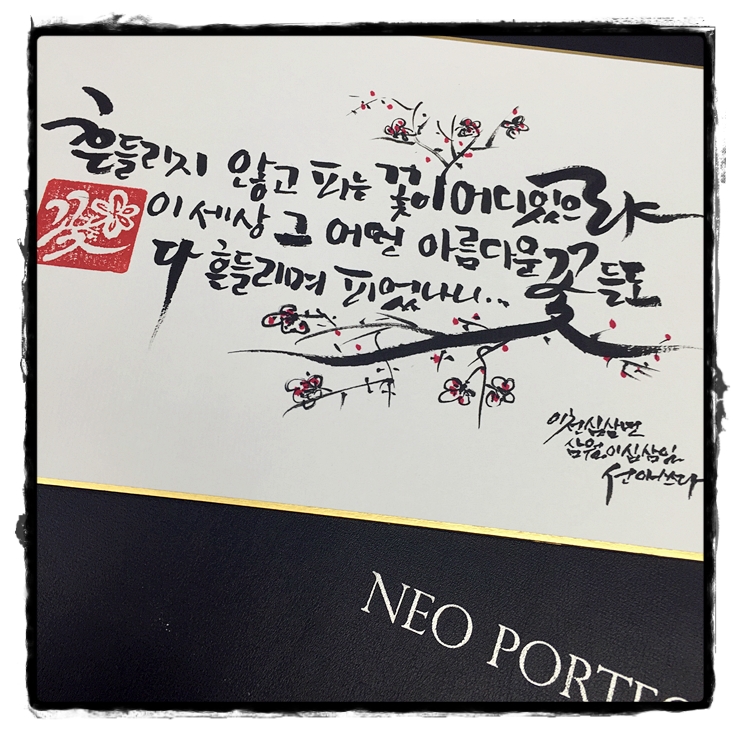 흔들리지 않고 피는 꽃이 어디있으랴
이 세상 그 어떤 아름다운 꽃들도
다 흔들리며 피었나니..
꽃
이천십삼년
삼월.이십삼일.
쓰다
NEO